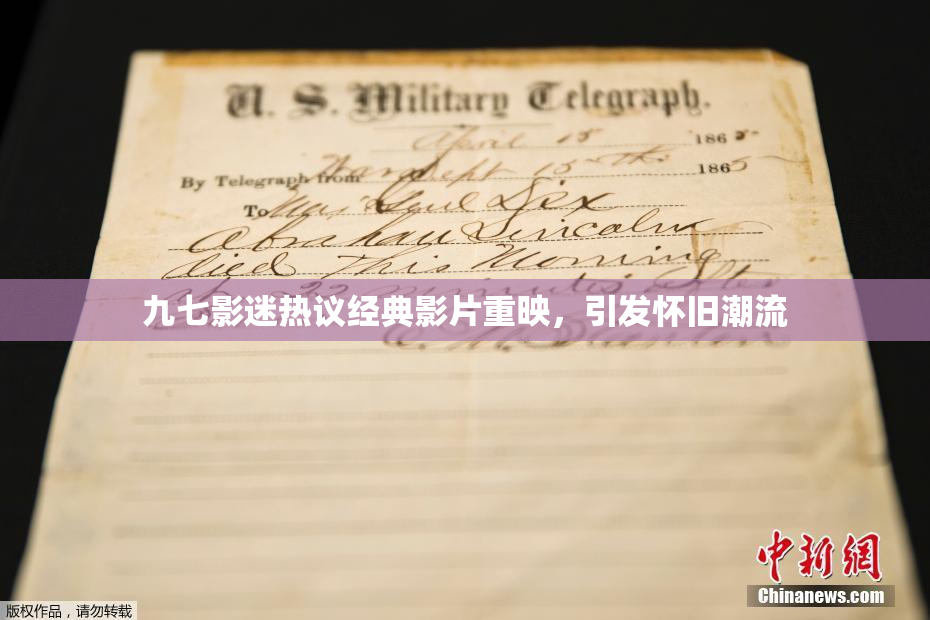 U. S. Military Telegraph.
April 15 1865
By Telegraph from War Dept 15th 1865
To Maj Genl Dix
Abraham Lincoln
died This Morning
at 22 minutes after
九七影迷热议经典影片重映，引发怀旧潮流
E. M. Stanton
中新网
Chinanews.com
版权作品，请勿转载